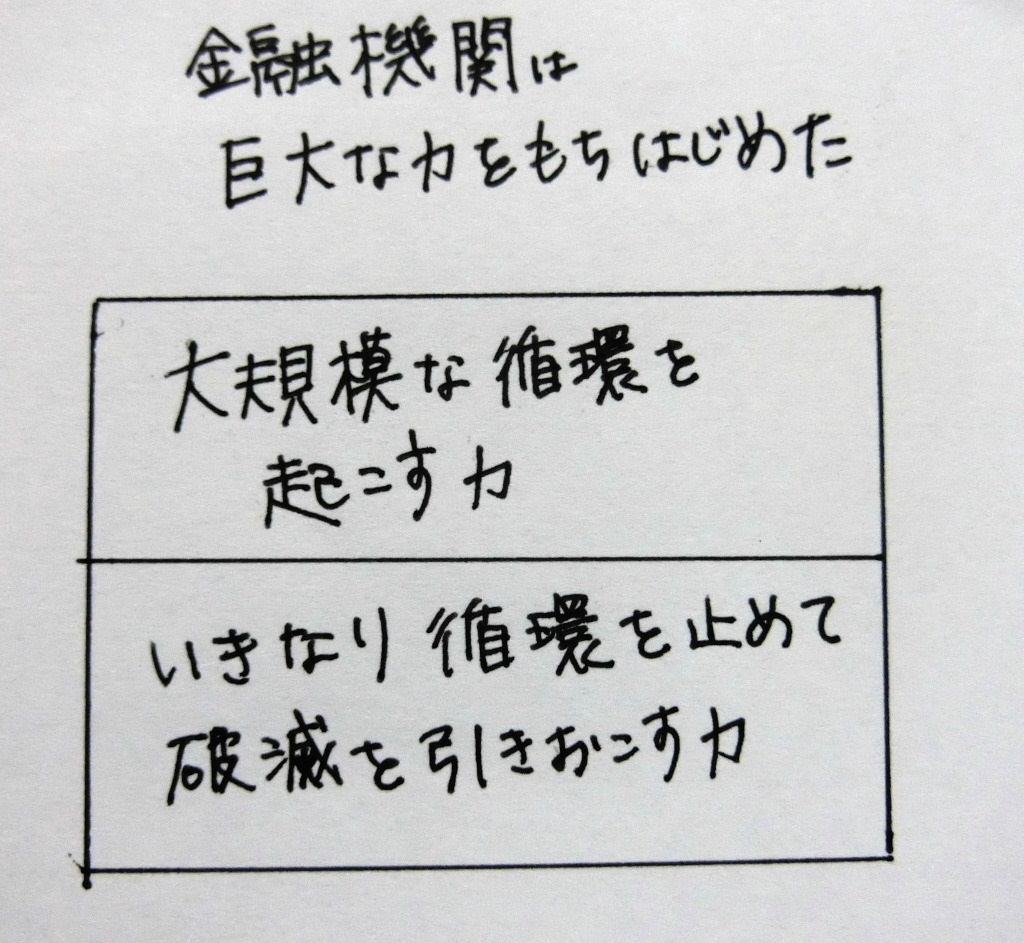 金融機関は
巨大な力をもちはじめた
大規模な循環を
起こす力
いきなり循環を止めて
破滅を引きおこす力